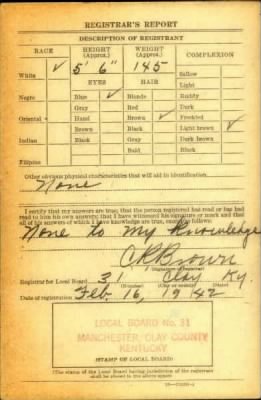 REGISTRAR'S REPORT
DESCRIPTION OF REGISTRANT
RACE HEIGHT (Approx.) WEIGHT (Approx.) COMPLEXION
White ✓ 5' 6" 145 Sallow
Light
EYES HAIR
Negro Blue ✓ Blonde Ruddy
Gray Red Dark
Oriental Hazel Brown ✓ Freckled
Brown Black Light brown ✓
Indian Black Gray Dark brown
Bald Black
Filipino
Other obvious physical characteristics that will aid in identification
None
I certify that my answers are true; that the person registered has read or has had
read to him his own answers; that I have witnessed his signature or mark and that
all of his answers of which I have knowledge are true, except as follows:
None to my Knowledge
C R Brown
(Signature of registrar)
Registrar for Local Board 31 Clay Ky
(Number) (City or county) (State)
Date of registration Feb. 16, 1942
LOCAL BOARD No. 31
MANCHESTER, CLAY COUNTY
KENTUCKY
(STAMP OF LOCAL BOARD)
(The stamp of the Local Board having jurisdiction of the registrant
shall be placed in the above space)